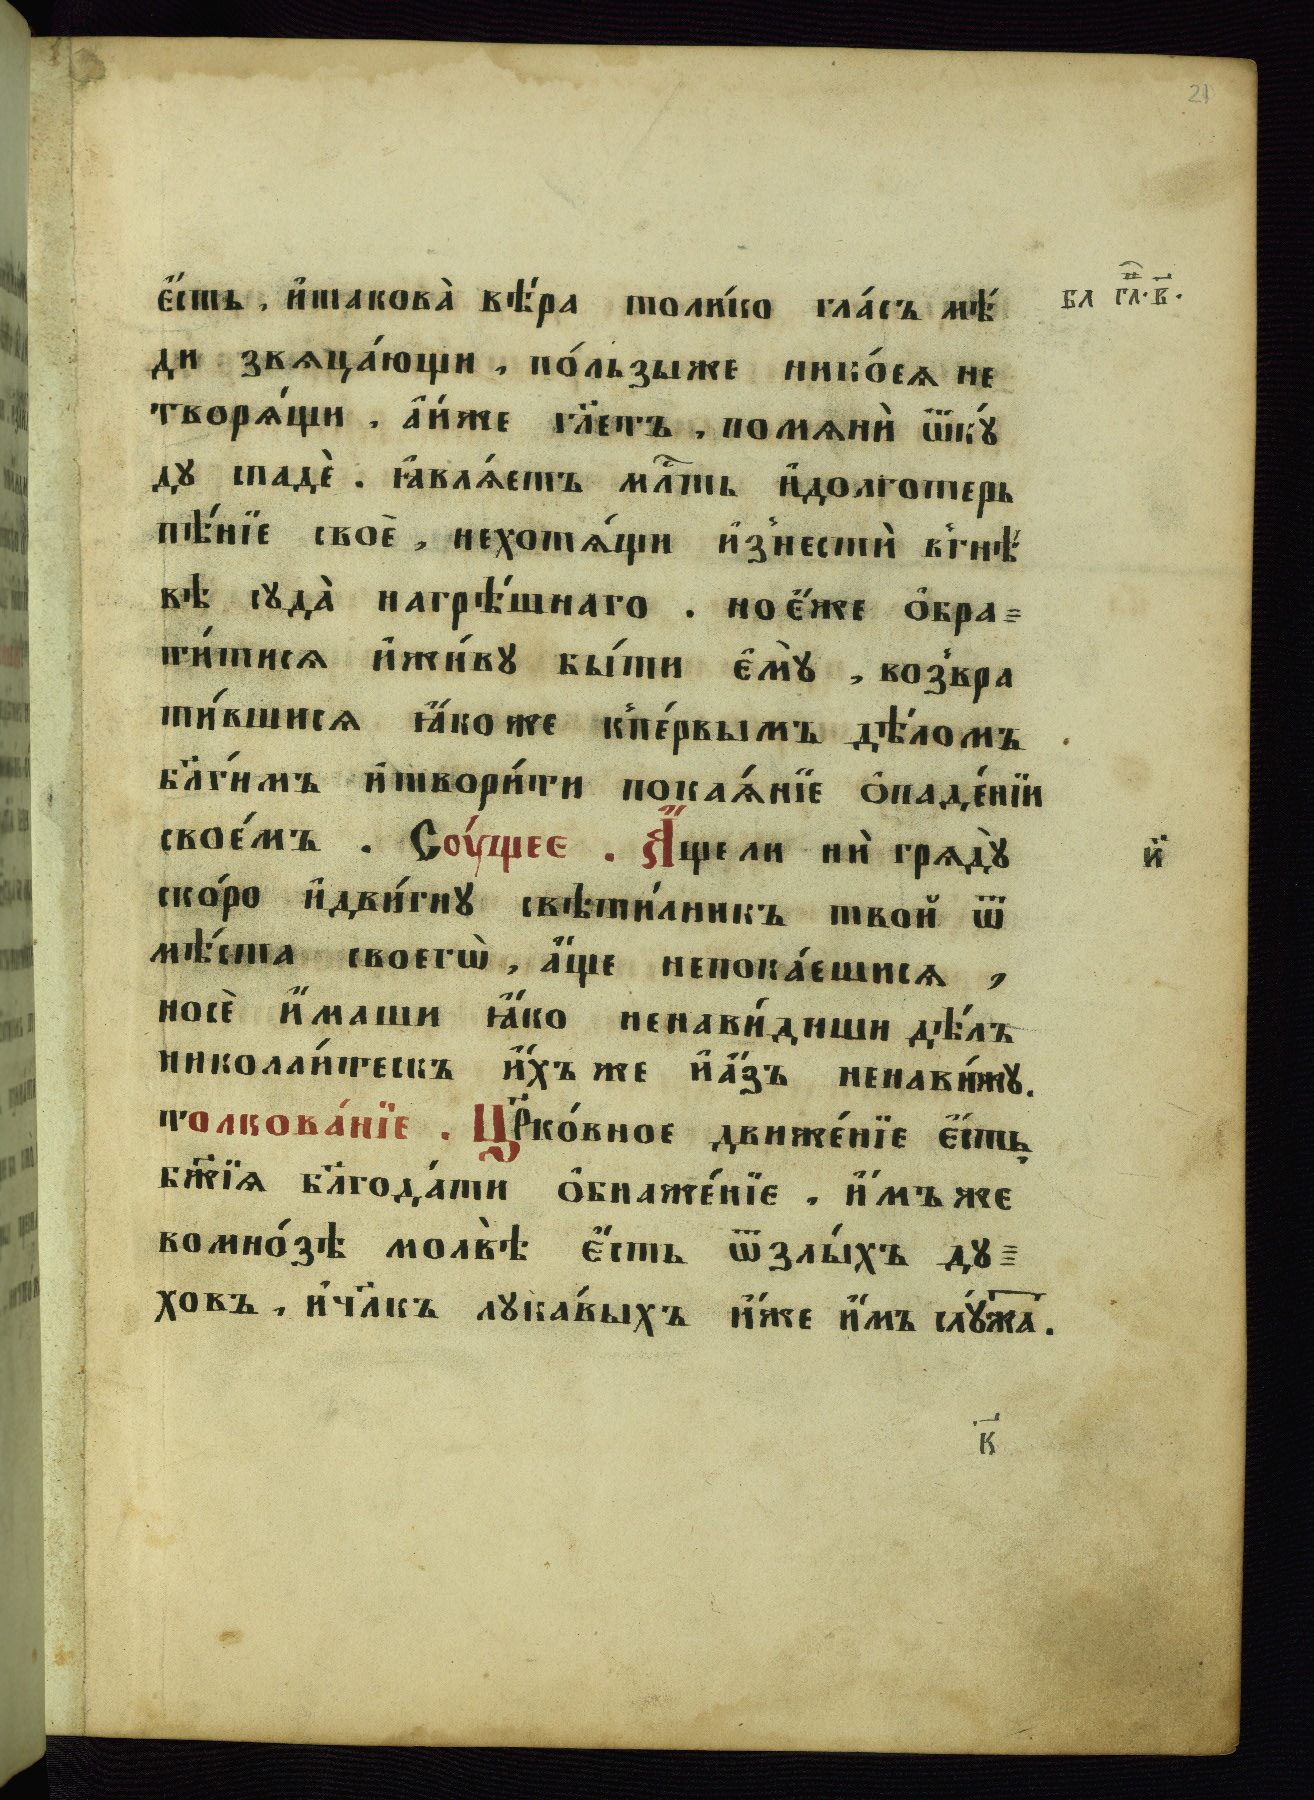 21
є҆́сть, и҆такова̀ вѣ́ра толи́ко гла́съ мѣ́
ди звѧца́ющи, по́льзыже нико́еѧ не
творѧ́щи. а҆и́же гл҃етъ, помѧнѝ ѿкꙋ́
дꙋ спадѐ. ꙗ҆влѧ́етъ млⷭ҇ть и҆долготерь
пѣ́нїе своѐ, нехотѧ́щи и҆з̾нестѝ в̾гнѣ́
вѣ сꙋда̀ нагрѣ́шнаго. ное҆́же ѻ҆бра=
ти́тисѧ и҆жи́вꙋ бы́ти є҆мꙋ̀, воз̾вра
ти́вшисѧ ꙗ҆́коже к̾пе́рвымъ дѣ́ломъ
бл҃ги́мъ и҆твори́ти покаѧ́нїе ѻ҆паде́нїи
свое́мъ. Соу́щее. А҆́щели нѝ грѧдꙋ̀
ско́ро и҆дви́гнꙋ свѣти́лникъ твой ѿ
мѣ́ста своегѡ̀, а҆́ще непока́ешисѧ,
носѐ и҆́маши ꙗ҆́ко ненави́диши дѣ́лъ
николаи́тескъ и҆́хъже и҆а҆́зъ ненави́жꙋ.
толкова́нїе. Цр҃ко́вное движе́нїе є҆́сть
бж҃їѧ бл҃года́ти ѻ҆бнаже́нїе, и҆́мъже
вомно́зѣ молвѣ̀ є҆́сть ѿзлы́хъ дꙋ=
ховъ, и҆чл҃къ лꙋка́выхъ и҆́же и҆̀мъ слꙋ́жа.
бл гл҃. в҃.
и҃
к҃